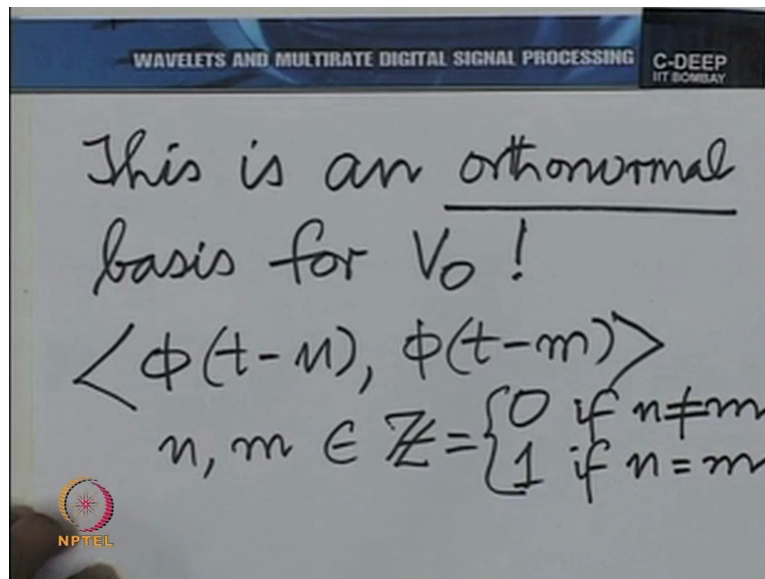 WAVELETS AND MULTIRATE DIGITAL SIGNAL PROCESSING
C-DEEP
IIT BOMBAY
This is an orthonormal
basis for V₀ !
<ϕ(t-n), ϕ(t-m)>
n, m ∈ ℤ = {0 if n≠m
1 if n=m
NPTEL